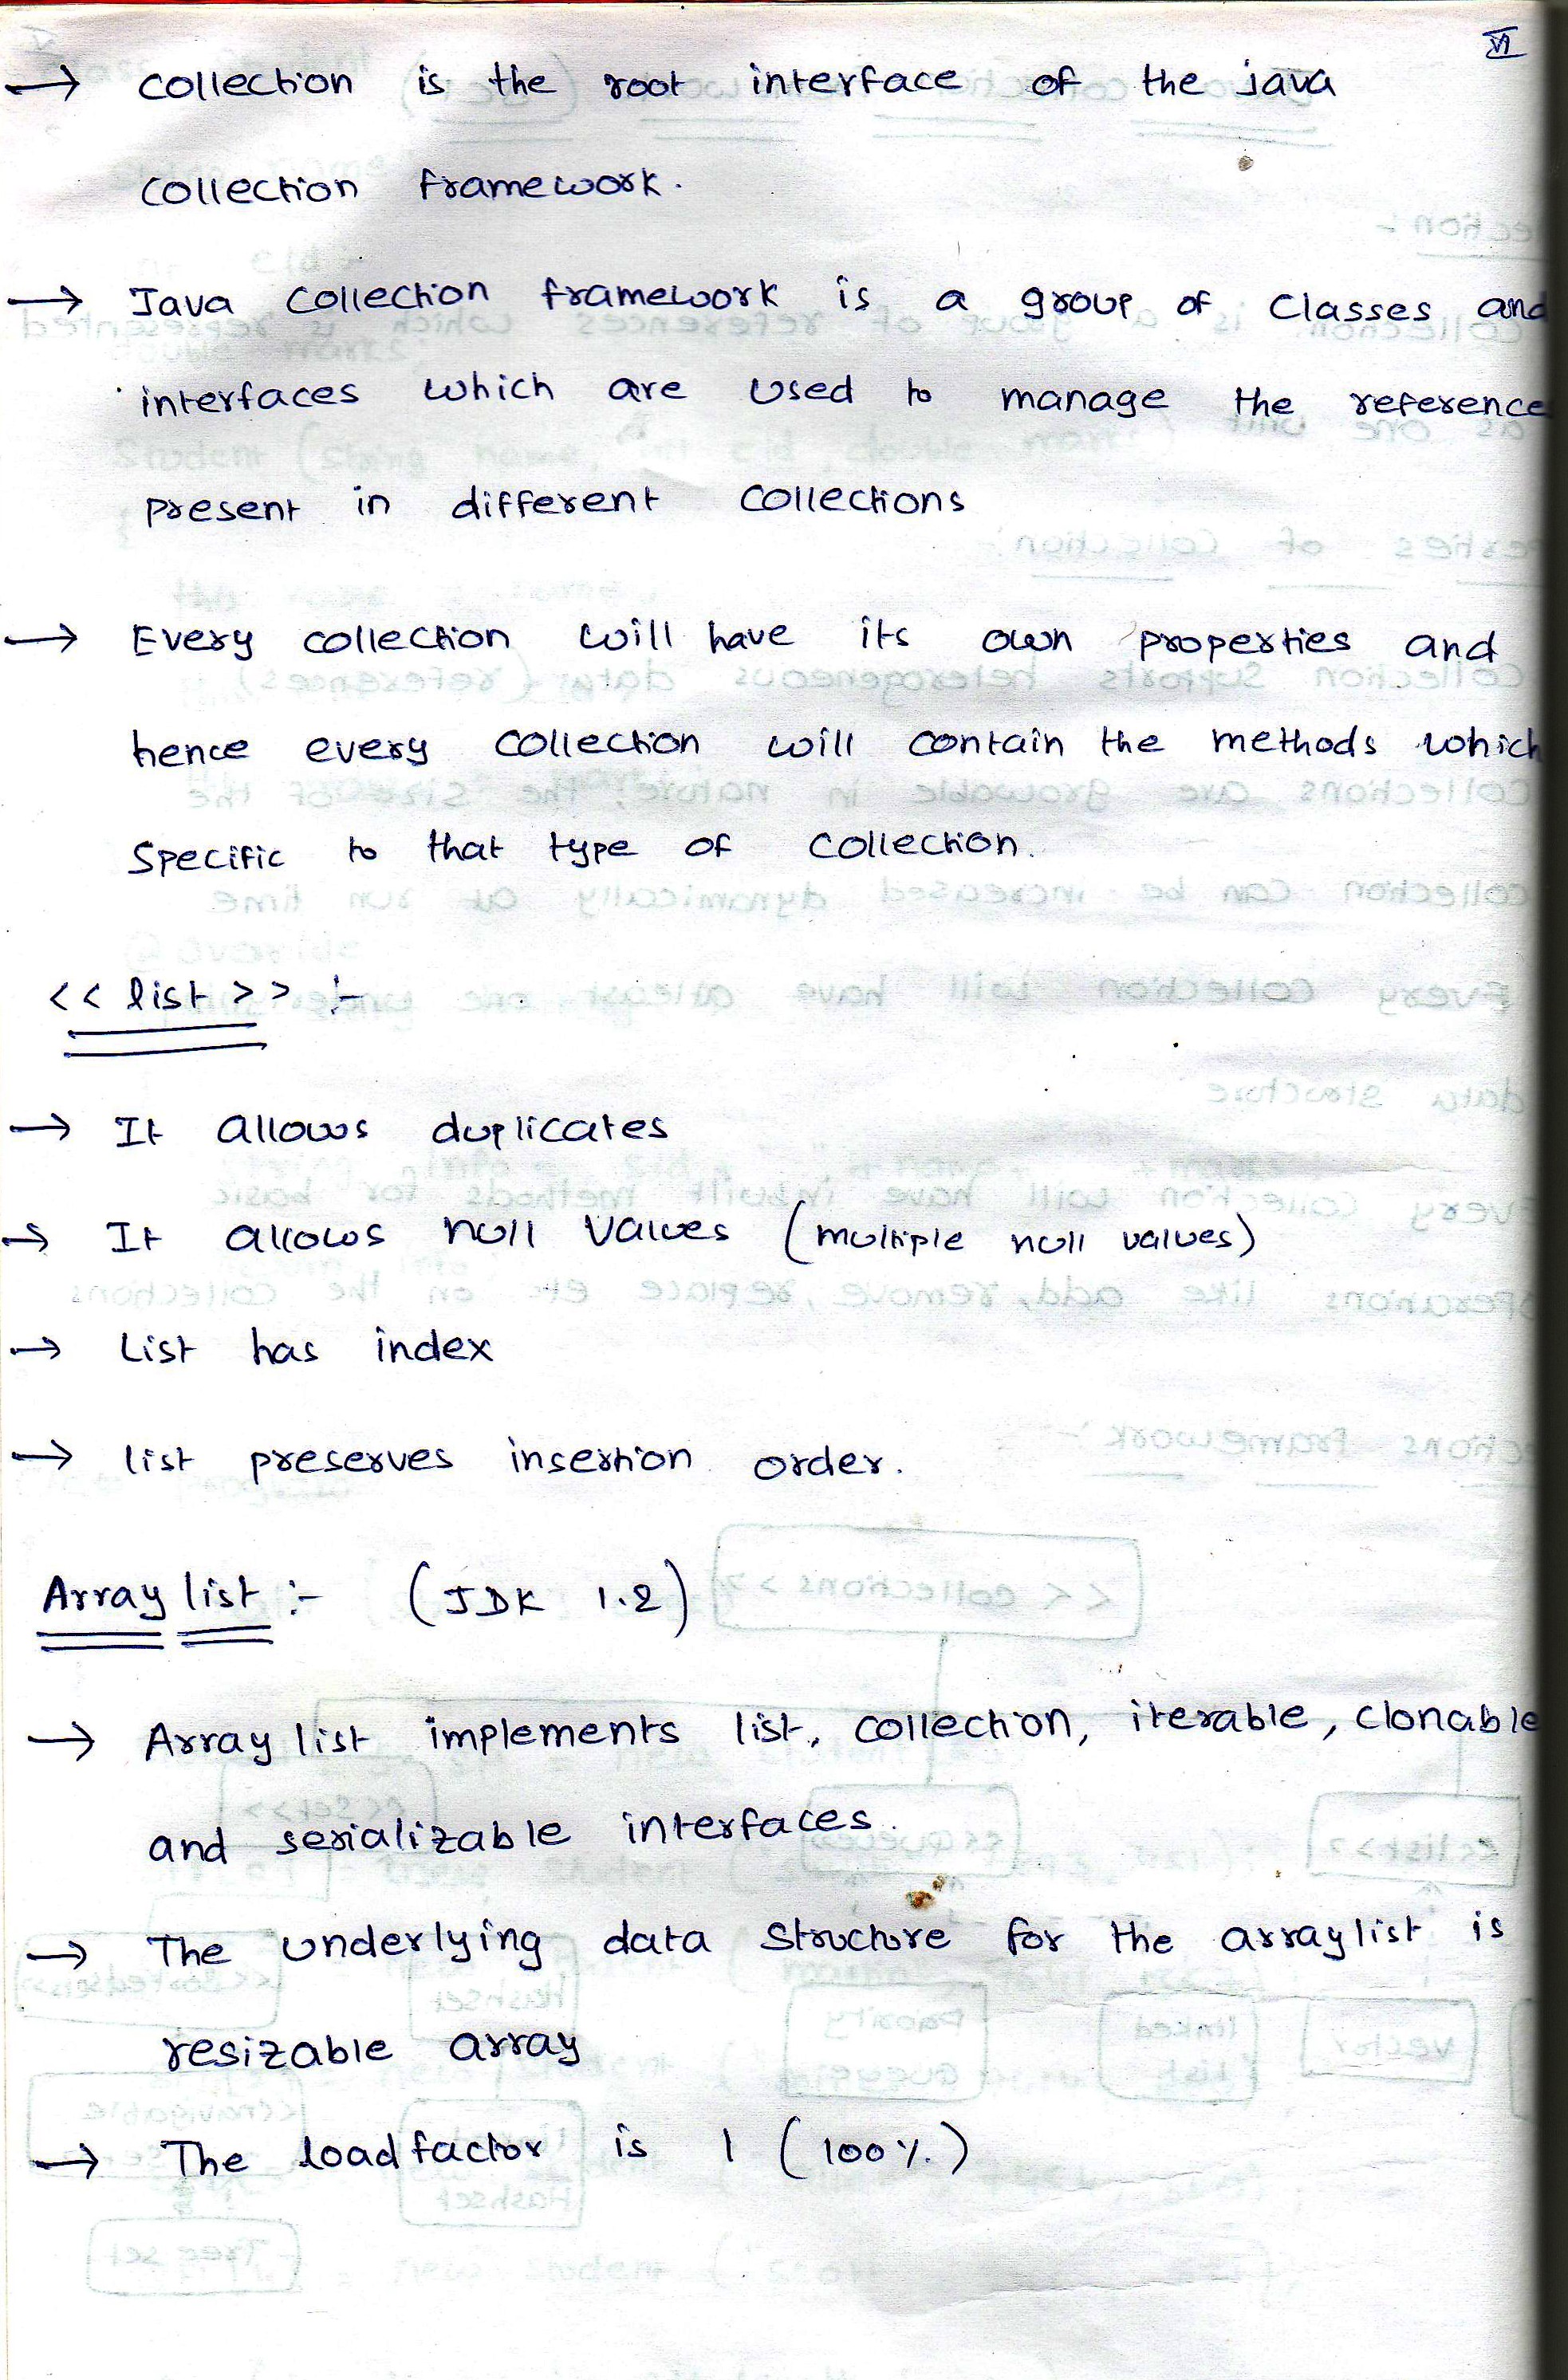 VI
→ collection is the root interface of the java
collection framework.
→ Java collection framework is a group of classes and
interfaces which are used to manage the reference
present in different collections
→ Every collection will have its own properties and
hence every collection will contain the methods which
specific to that type of collection.
<< list >> :-
→ It allows duplicates
→ It allows null values (multiple null values)
→ List has index
→ list preserves insertion order.
Array list :- (JDK 1.2)
→ Array list implements list, collection, iterable, clonable
and serializable interfaces.
→ The underlying data structure for the arraylist is
resizable array
→ The load factor is 1 (100%)